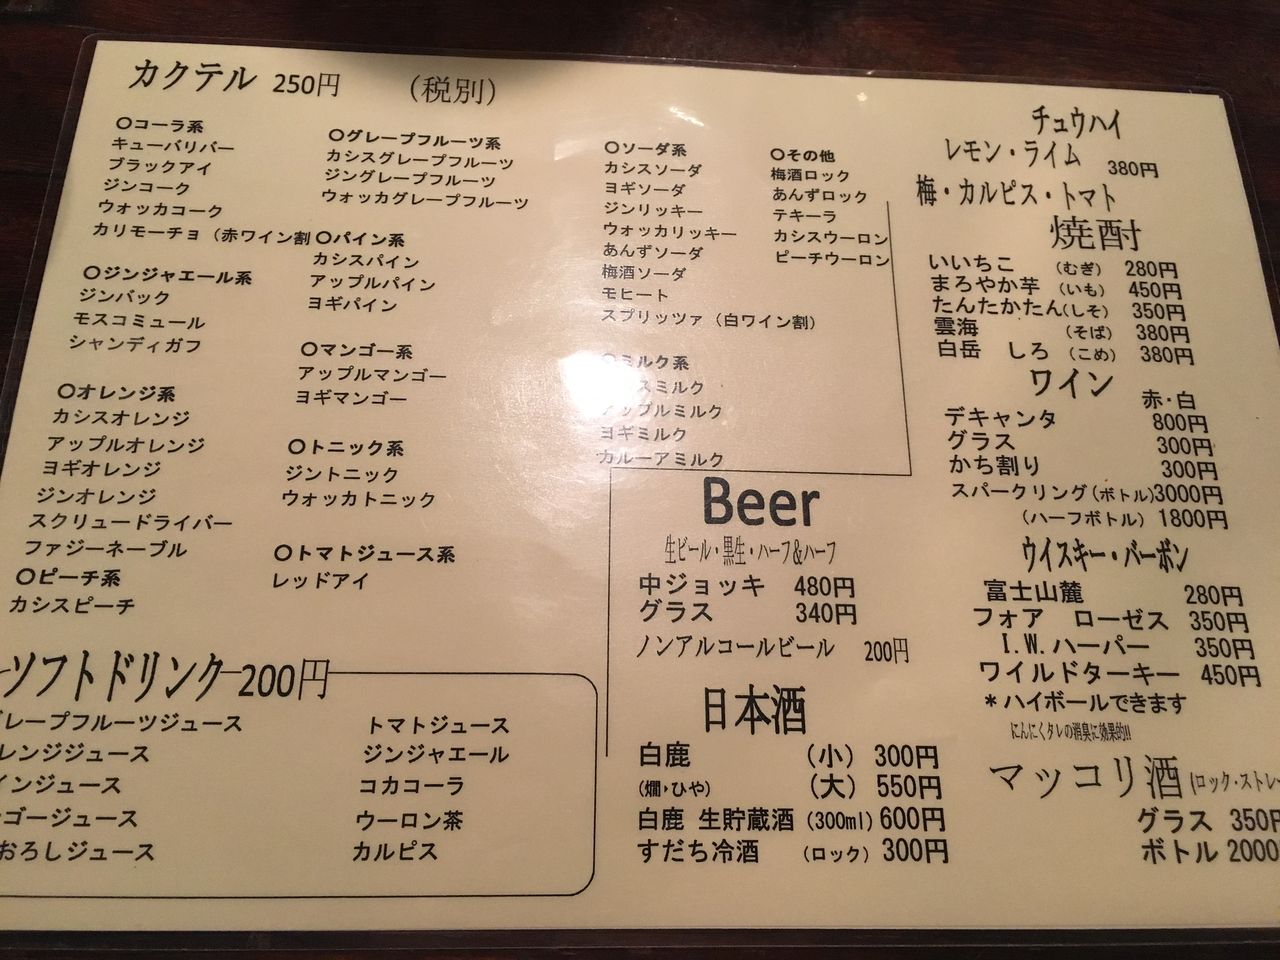 カクテル 250円 (税別)
〇コーラ系
キューバリバー
ブラックアイ
ジンコーク
ウォッカコーク
カリモーチョ (赤ワイン割
〇ジンジャエール系
ジンバック
モスコミュール
シャンディガフ
〇オレンジ系
カシスオレンジ
アップルオレンジ
ヨギオレンジ
ジンオレンジ
スクリュードライバー
ファジーネーブル
〇ピーチ系
カシスピーチ
〇グレープフルーツ系
カシスグレープフルーツ
ジングレープフルーツ
ウォッカグレープフルーツ
〇パイン系
カシスパイン
アップルパイン
ヨギパイン
〇マンゴー系
アップルマンゴー
ヨギマンゴー
〇トニック系
ジントニック
ウォッカトニック
〇トマトジュース系
レッドアイ
〇ソーダ系
カシスソーダ
ヨギソーダ
ジンリッキー
ウォッカリッキー
あんずソーダ
梅酒ソーダ
モヒート
スプリッツァ (白ワイン割)
〇ミルク系
スミルク
アップルミルク
ヨギミルク
カルーアミルク
〇その他
梅酒ロック
あんずロック
テキーラ
カシスウーロン
ピーチウーロン
チュウハイ
レモン・ライム 380円
梅・カルピス・トマト
焼酎
いいちこ (むぎ) 280円
まろやか芋 (いも) 450円
たんたかたん(しそ) 350円
雲海 (そば) 380円
白岳 しろ (こめ) 380円
ワイン
赤・白
デキャンタ 800円
グラス 300円
かち割り 300円
スパークリング(ボトル)3000円
(ハーフボトル) 1800円
ウイスキー・バーボン
富士山麓 280円
フォア ローゼス 350円
I.W.ハーパー 350円
ワイルドターキー 450円
*ハイボールできます
にんにくタレの消臭に効果的!!
マッコリ酒 (ロック・ストレー
グラス 350円
ボトル 2000
Beer
生ビール・黒生・ハーフ&ハーフ
中ジョッキ 480円
グラス 340円
ノンアルコールビール 200円
日本酒
白鹿 (小) 300円
(燗・ひや) (大) 550円
白鹿 生貯蔵酒 (300ml) 600円
すだち冷酒 (ロック) 300円
ソフトドリンク 200円
グレープフルーツジュース
レンジジュース
インジュース
ゴージュース
おろしジュース
トマトジュース
ジンジャエール
コカコーラ
ウーロン茶
カルピス